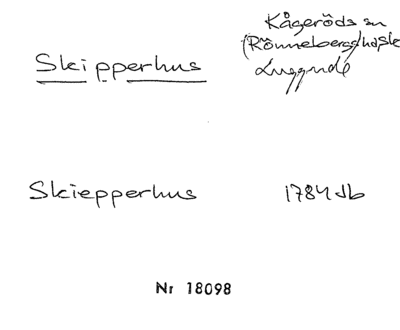 Skipperhus
Kågeröds sn
(Rönnebergs hdsk
Luggude
Skiepperhus 1784 db
Nr 18098